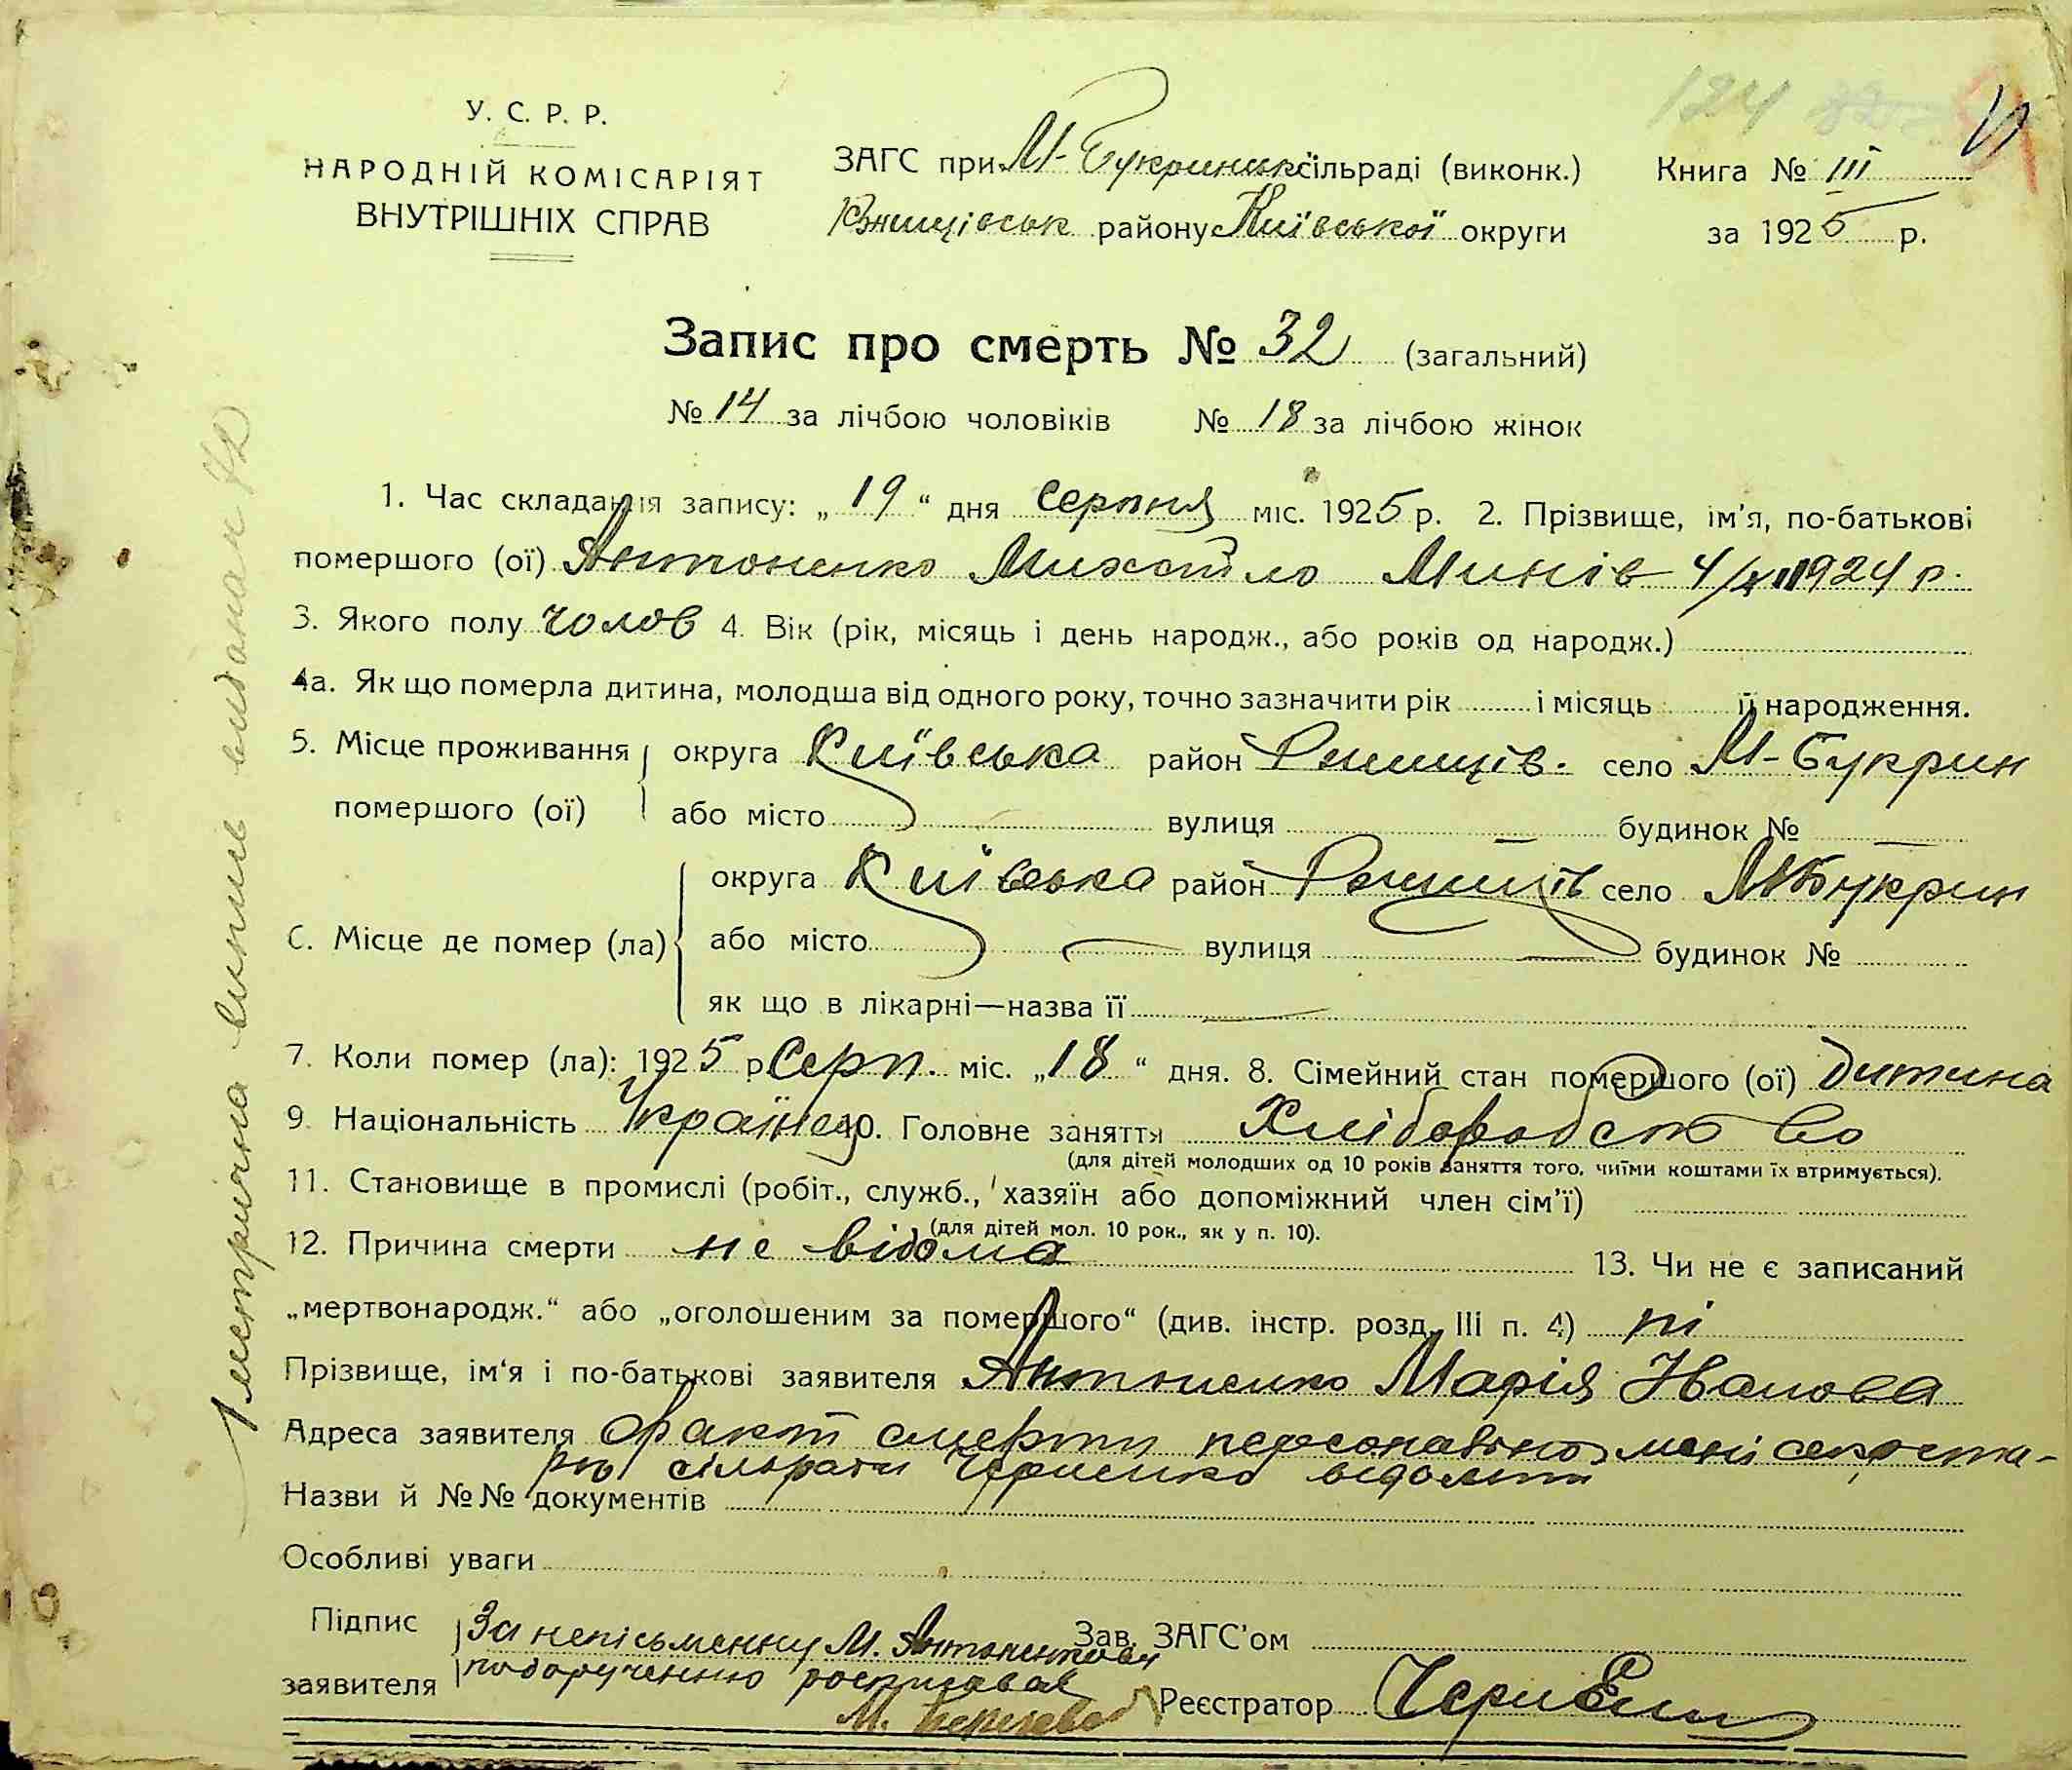 124
У. С. Р. Р.
НАРОДНІЙ КОМІСАРІЯТ
ВНУТРІШНІХ СПРАВ
ЗАГС при М-Букринськ сільраді (виконк.)
Ржищівськ району Київської округи
Книга № III
за 1925 р.
Запис про смерть № 32 (загальний)
№ 14 за лічбою чоловіків № 18 за лічбою жінок
1. Час складання запису: „19“ дня Серпня міс. 1925 р. 2. Прізвище, ім’я, по-батькові
помершого (ої) Антоненко Михайло Минів 4/XI 1924 р.
3. Якого полу чолов 4. Вік (рік, місяць і день народж., або років од народж.)
4а. Як що померла дитина, молодша від одного року, точно зазначити рік і місяць її народження.
5. Місце проживання помершого (ої) округа Київська район Ржищів. село М-Букрин
або місто вулиця — будинок № —
С. Місце де помер (ла) округа Київська район Ржищів село М-Букрин
або місто — вулиця — будинок №
як що в лікарні—назва її —
7. Коли помер (ла): 1925 р. Серп. міс. „18“ дня. 8. Сімейний стан помершого (ої) дитина
9. Національність Українец 10. Головне заняття Хліборобство
(для дітей молодших од 10 років заняття того, чиїми коштами їх втримується).
11. Становище в промислі (робіт., служб., хазяїн або допоміжний член сім’ї)
(для дітей мол. 10 рок., як у п. 10).
12. Причина смерти не відома 13. Чи не є записаний
„мертвонародж.“ або „оголошеним за помершого“ (див. інстр. розд. III п. 4) ні
Прізвище, ім‘я і по-батькові заявителя Антоненко Марія Іванова
Адреса заявителя Факт смерти персонально мені секрета-
рю сільради Черненко відомий
Назви й №№ документів
Особливі уваги
Підпис заявителя За неписьменну М. Антоненкову
по доручению росписавсь
М.
Зав. ЗАГС’ом
Реєстратор
Метрична випись видана